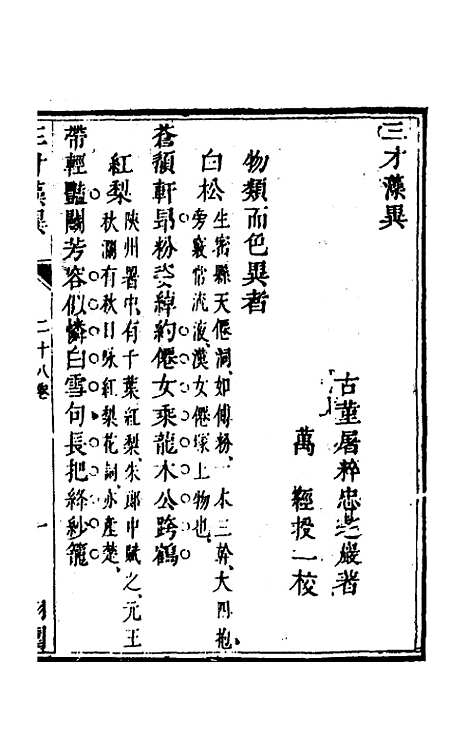 三才藻異
古董屠粹忠芝巖著
萬 經授一校
物類而色異者
白松 生密縣天僊洞如傅粉一木三幹大四抱
旁竅常流液漢女僊塚上物也
蒼顏軒昴粉姿綽約僊女乘龍木公跨鶴
紅梨 陝州署中有千葉紅梨朱郎中賦之元王
秋澗有秋日咏紅梨花詞亦產楚
帶輕豔閙芳容似憐白雪句長把絳紗籠
三才藻異 二十八卷 一